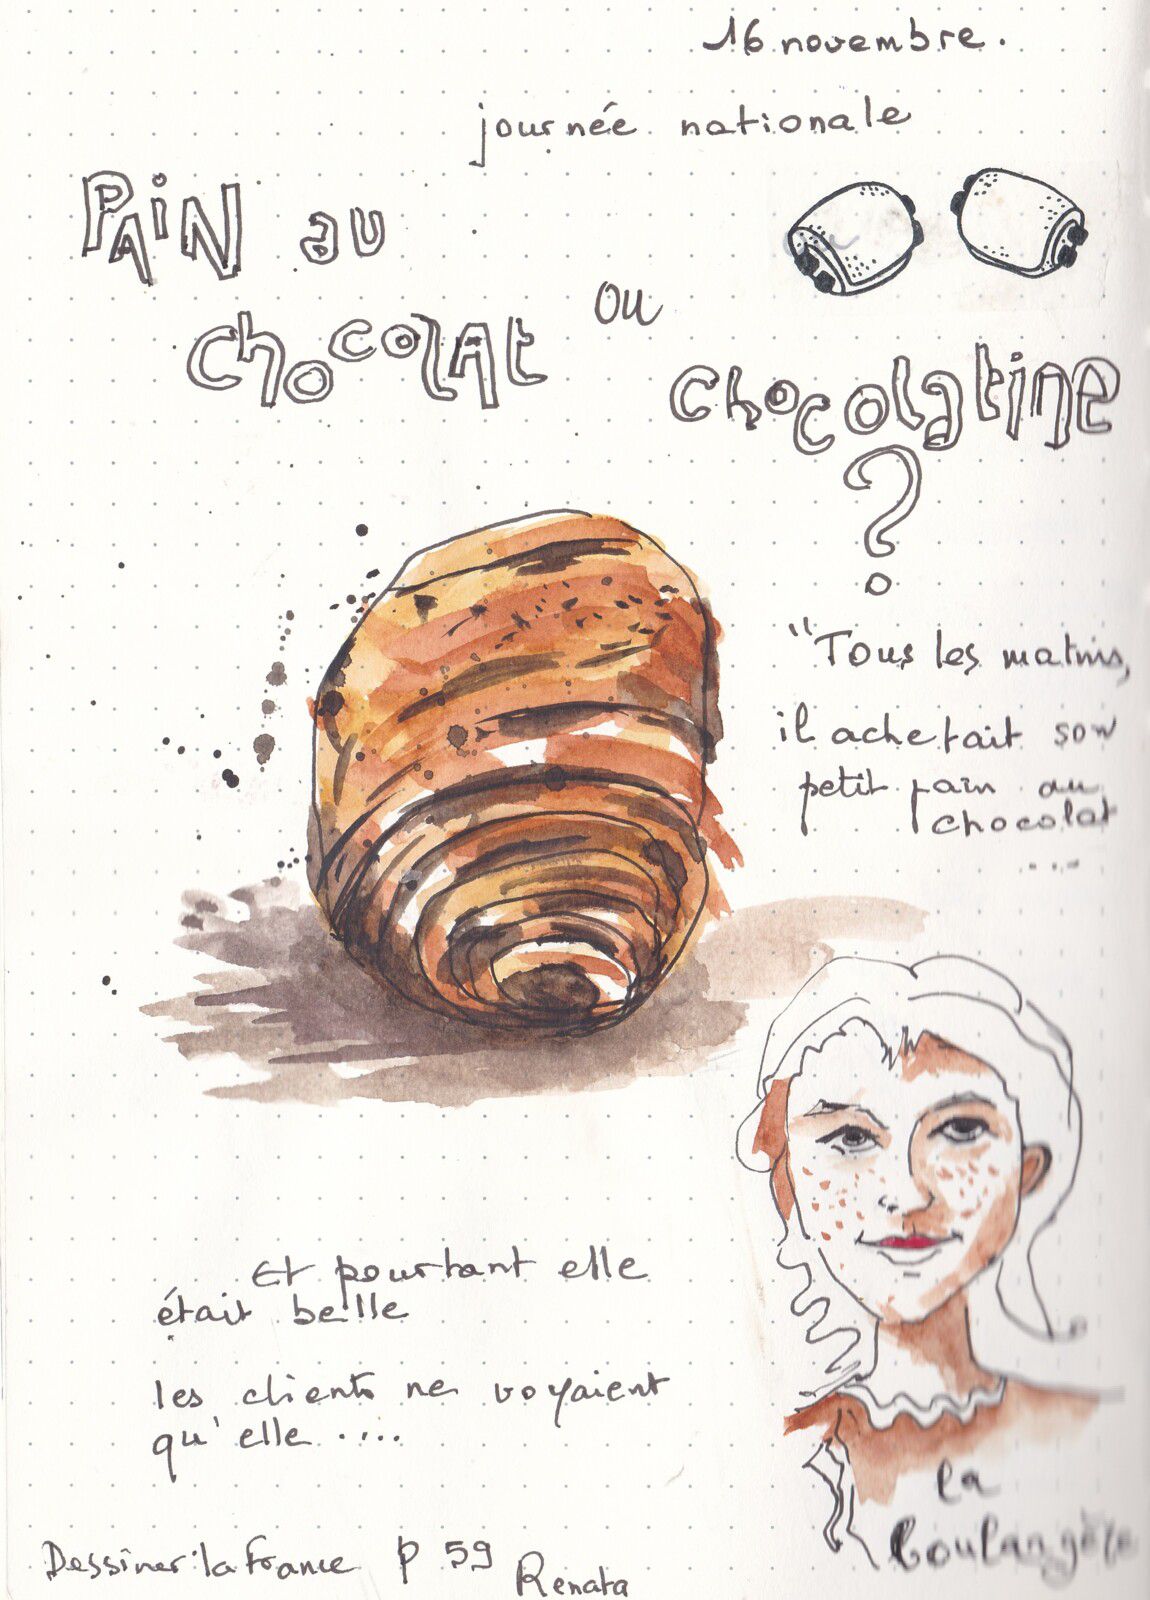 16 novembre.
journée nationale
PAiN au
chocolat
ou
chocolatine
?
"Tous les matins,
il achetait son
petit pain au
chocolat
...
Et pourtant elle
était belle
les clients ne voyaient
qu'elle ....
la
boulangère
Dessiner la France P 59
Renata